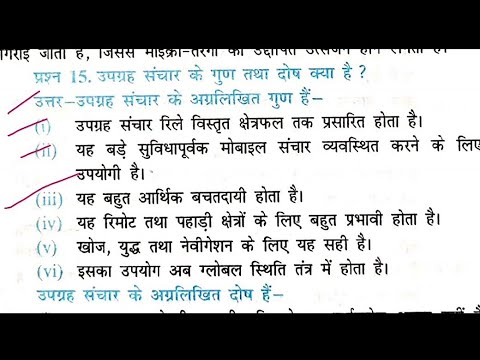 प्रश्न 15. उपग्रह संचार के गुण तथा दोष क्या है ?
उत्तर–उपग्रह संचार के अग्रलिखित गुण हैं–
(i) उपग्रह संचार रिले विस्तृत क्षेत्रफल तक प्रसारित होता है।
(ii) यह बड़े सुविधापूर्वक मोबाइल संचार व्यवस्थित करने के लिए
उपयोगी है।
(iii) यह बहुत आर्थिक बचतदायी होता है।
(iv) यह रिमोट तथा पहाड़ी क्षेत्रों के लिए बहुत प्रभावी होता है।
(v) खोज, युद्ध तथा नेवीगेशन के लिए यह सही है।
(vi) इसका उपयोग अब ग्लोबल स्थिति तंत्र में होता है।
उपग्रह संचार के अग्रलिखित दोष हैं–